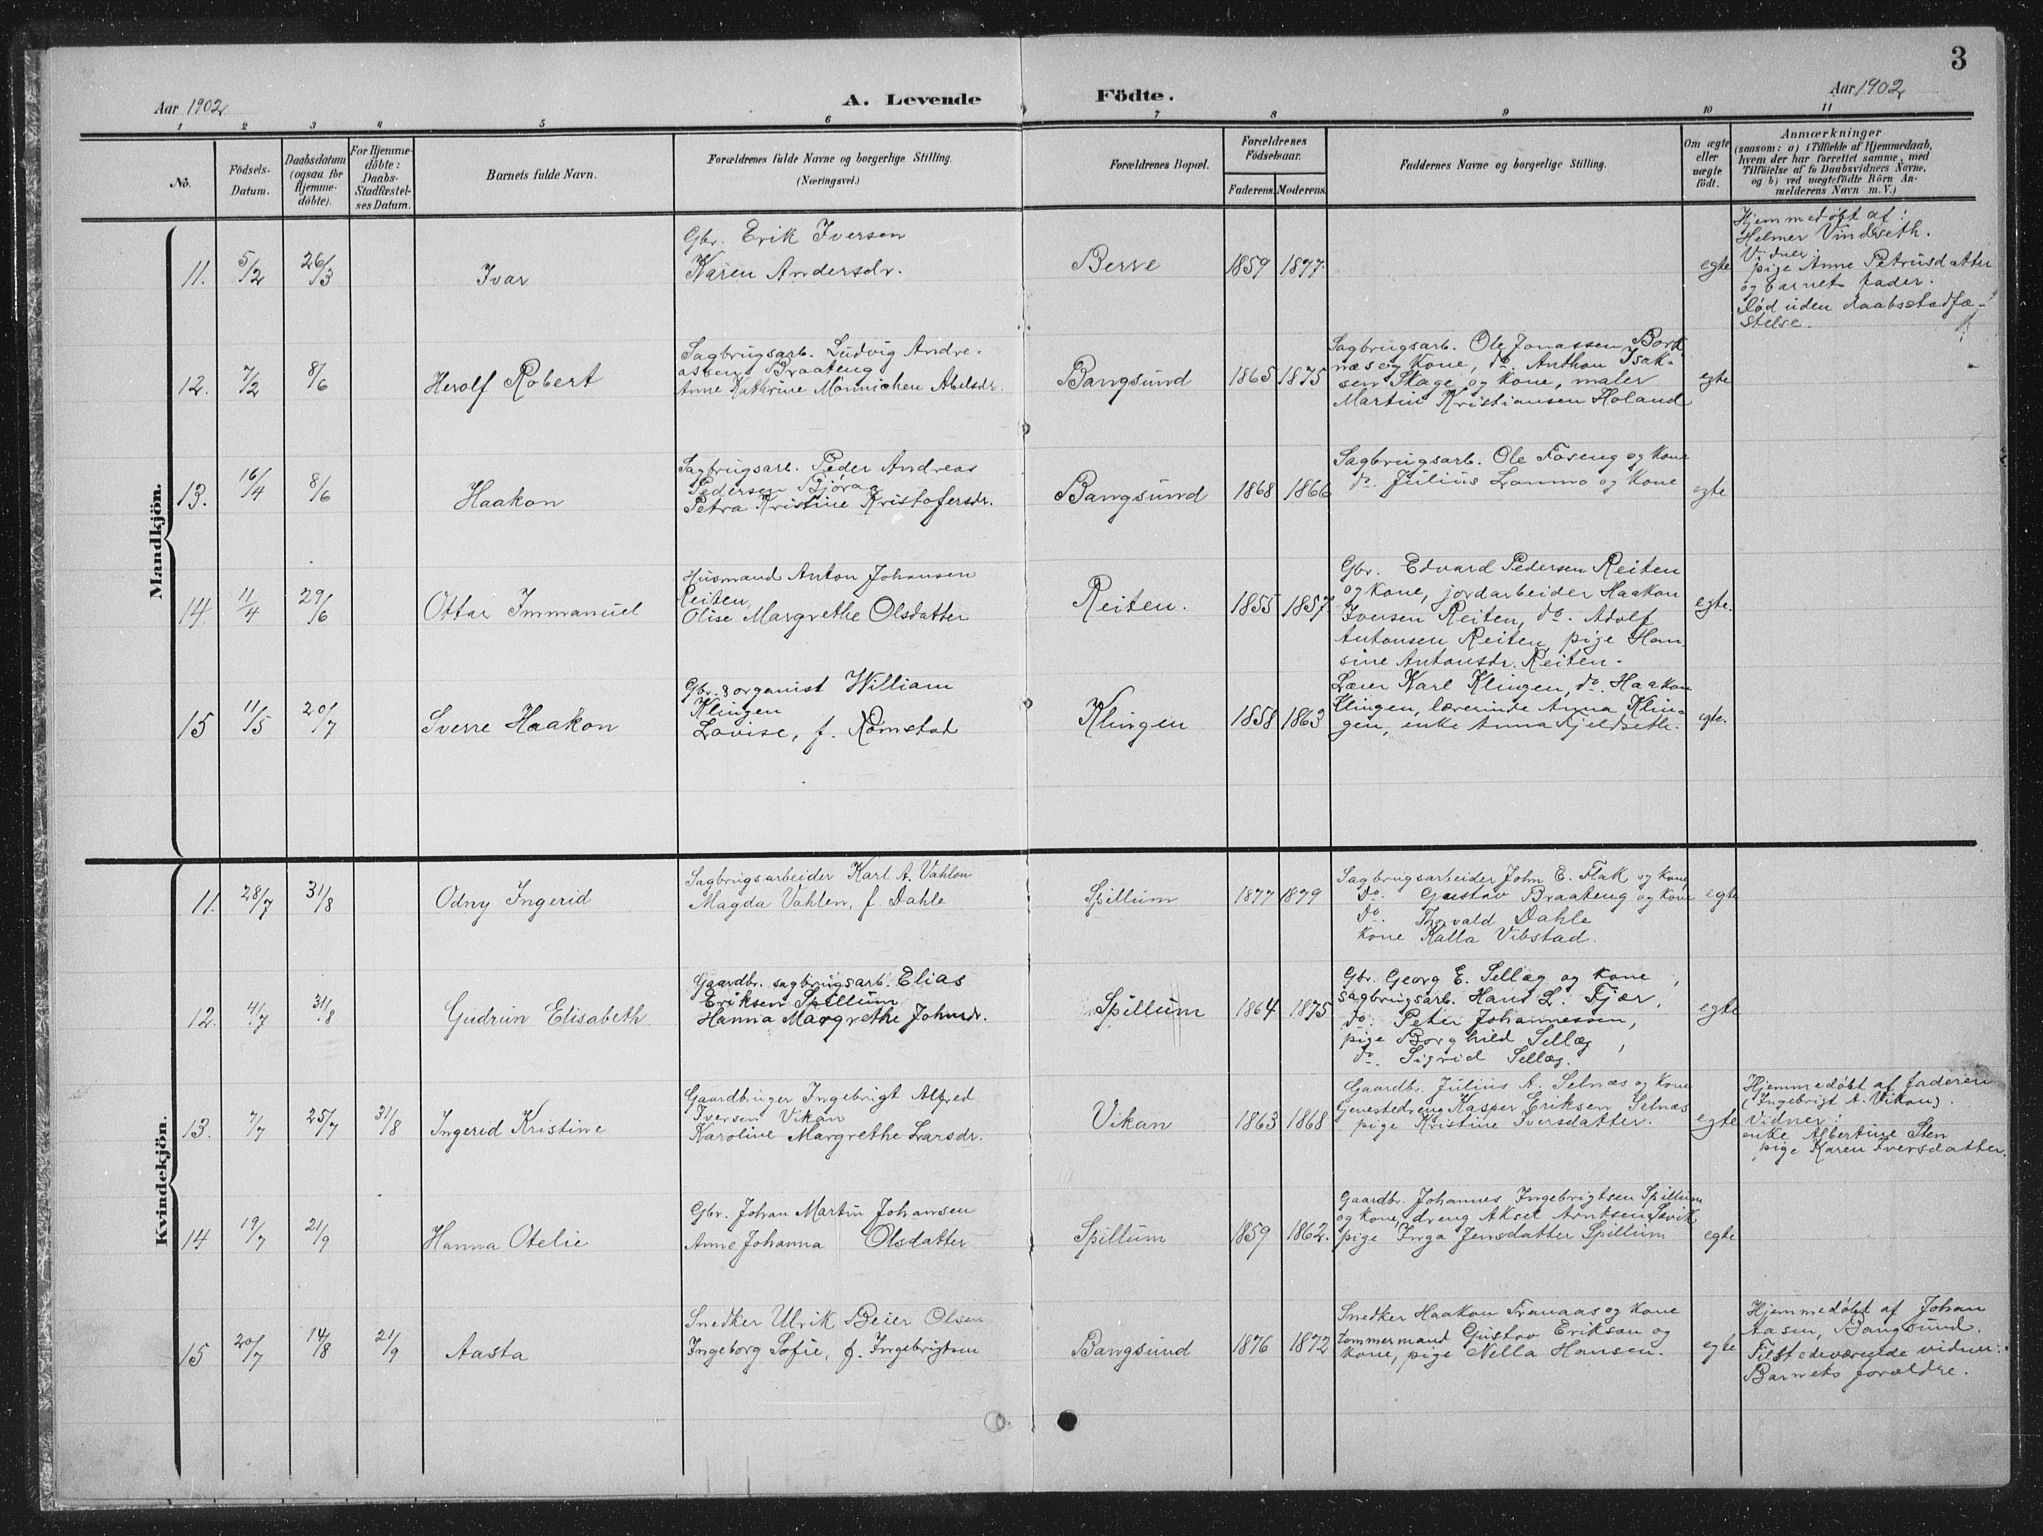 3
Aar 1902
A. Levende Födte.
Aar 1902
1 2 3 4 5 6 7 8 9 10 11
No.
Födsels-
Datum.
Daabsdatum
(ogsaa for
Hjemme-
döbte).
For Hjemme-
döbte:
Daabs-
Stadfæstel-
ses Datum.
Barnets fulde Navn.
Forældrenes fulde Navne og borgerlige Stilling.
(Næringsvei.)
Forældrenes Bopæl.
Forældrenes
Födselsaar.
Faderens. Moderens.
Faddernes Navne og borgerlige Stilling.
Om ægte
eller
uægte
födt.
Anmærkninger
(saasom: a) i Tilfælde af Hjemmedaab,
hvem der har forrettet samme, med
Tilföielse af to Daabsvidners Navne,
og b) ved uægtefödte Börn An-
melderens Navn m. V.)
Mandkjön.
11. 5/2 26/3 Ivar
Gbr. Erik Iversen
Karen Andersdr.
Berre 1859 1877. egte
Hjemmedøbt af:
Helmer Vindseth.
Vidner:
pige Anne Petrusdatter
og barnets fader.
Død uden daabsstadfæ-
stelse.
12. 7/2 8/6 Herolf Robert
Sagbrugsarb. Ludvig Andre-
assen Braateng
Anne Kathrine Mønnichen Abelsdr.
Bangsund 1865 1875
Sagbrugsarb. Ole Jonassen Bork-
næs og kone, do. Anthon Isak-
sen Skage og kone, maler
Martin Kristiansen Holand
egte
13. 16/4 8/6 Haakon
Sagbrugsarb. Peder Andreas
Pedersen Bjøraa
Petra Kristine Kristofersdr.
Bangsund 1868 1866
Sagbrugsarb. Ole Foseng og kone
do. Julius Lommo og kone
egte
14. 11/4 29/6 Ottar Immanuel
Husmand Anton Johansen
Reiten,
Olise Margrethe Olsdatter
Reiten. 1855 1857.
Gbr. Edvard Pedersen Reiten
og kone, jordarbeider Haakon
Iversen Reiten, do. Adolf
Antonsen Reiten, pige Han-
sine Antonsdr. Reiten.
egte.
15 11/5 20/7 Sverre Haakon
Gbr. & organist William
Klingen
Lovise, f. Romstad
Klingen 1858 1863
Lærer Karl Klingen, do. Haakon
Klingen, lærerinde Anna Klin-
gen, enke Anna Fjeldseth.
egte.
Kvindekjön.
11. 28/7 31/8 Odny Ingerid
Sagbrugsarbeider Karl A. Vahlen
Magda Vahlen, f. Dahle
Spillum 1877 1879
Sagbrugsarbeider John E. Flak og kone,
Do. Gustav Braateng og kone
Do. Thorvald Dahle
kone Kalla Vibstad.
egte
12. 4/7 31/8 Gudrun Elisabeth
Gaardbr. sagbrugsarb. Elias
Eriksen Spillum
Hanna Margrethe Johnsdr.
Spillum 1864 1875
Gbr. Georg E. Sellæg og kone,
sagbrugsarb. Hans L. Fjær,
do. Peter Johannessen,
pige Borghild Sellæg,
do. Sigrid Sellæg.
egte
13. 7/7 25/7 31/8 Ingerid Kristine
Gaardbruger Ingebrigt Alfred
Iversen Vikan
Karoline Margrethe Larsdr.
Vikan 1863 1868
Gaardbr. Julius A. Selnæs og kone
Tjenestedreng Kasper Eriksen Selnæs
pige Kristine Iversdatter.
egte
Hjemmedøbt af faderen
(Ingebrigt A. Vikan).
Vidner:
enke Albertine Sten
pige Karen Iversdatter.
14 19/7 21/9 Hanna Otelie
Gbr. Johan Martin Johansen
Anne Johanna Olsdatter
Spillum 1859 1862.
Gaardbr. Johannes Ingebrigtsen Spillum
og kone, dreng Aksel Arntsen Sævik
pige Inga Jensdatter Spillum
egte
15 20/7 14/8 21/9 Aasta
Snedker Ulrik Beier Olsen
Ingeborg Sofie, f. Ingebrigtsen
Bangsund 1876 1872
Snedker Haakon Franaas og kone
tommermand Gustav Erikson og
kone, pige Nella Hansen.
egte
Hjemmedøbt af Johan
Aasen, Bangsund.
Tilstedeværende vidner:
Barnets forældre.